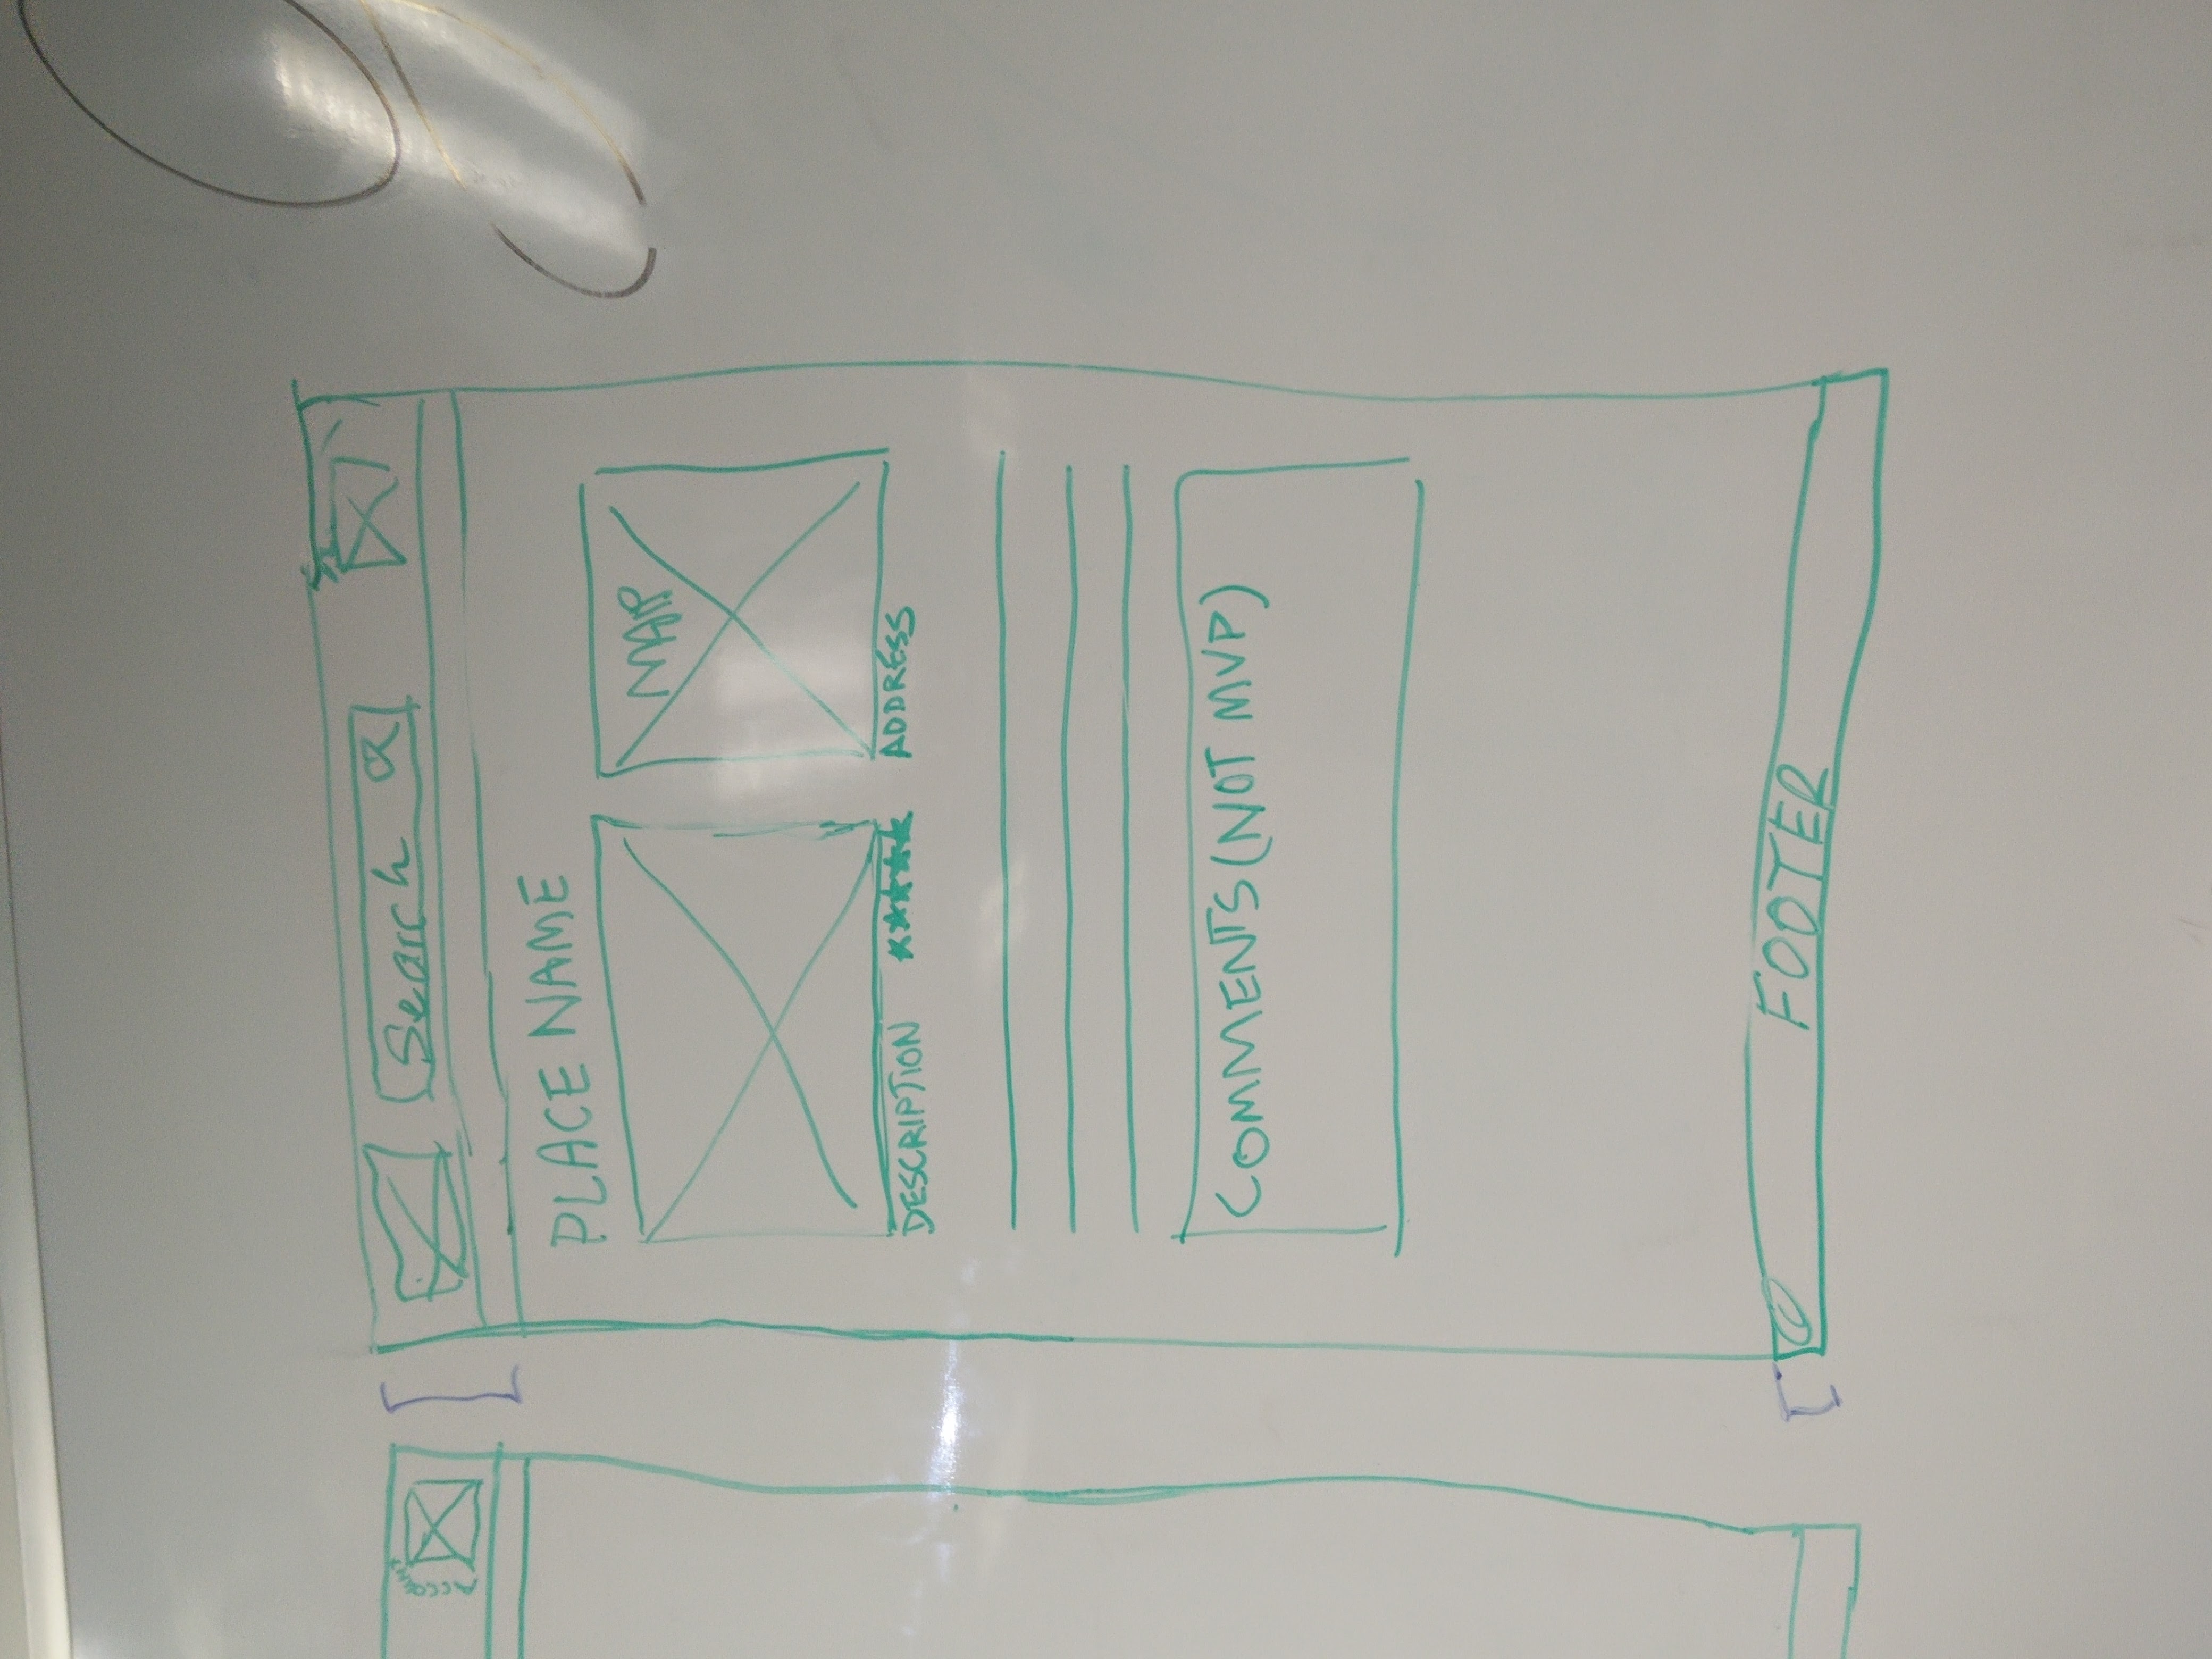 ACCOUNT
Search
PLACE NAME
MAP
DESCRIPTION ★★★★★ ADDRESS
COMMENTS (NOT MVP)
FOOTER